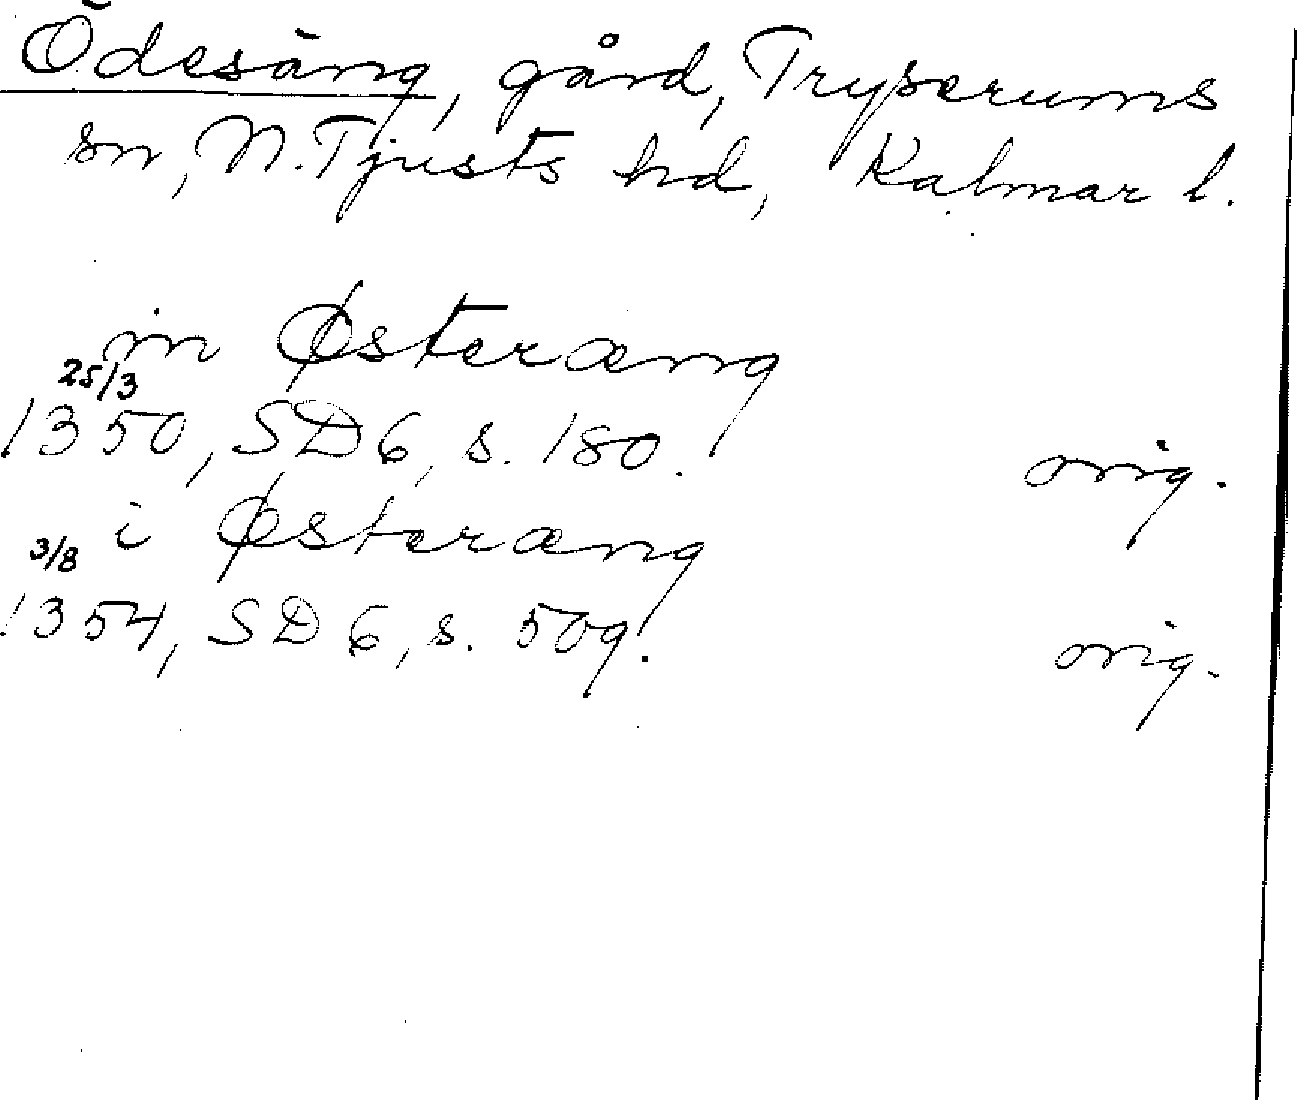 Ödesäng, gård, Tryserums
sn, N. Tjusts hd, Kalmar l.
in Østeræng
25/3
1350, SD 6, s. 180. orig.
i Østeræng
3/8
1354, SD 6, s. 509. orig.